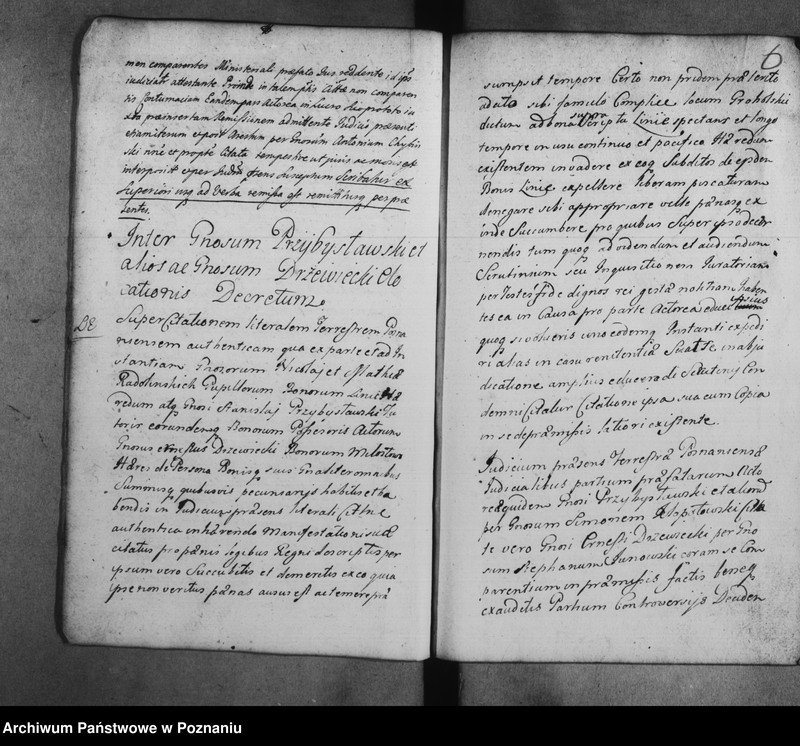 non comparentes Ministeriali præfato Jus reddente id ipsum
judicialr attestante Proinde in talem ptis Cittæ non comparen
tis Contumaciam Eandem pars Actorea in Lucro
præinsertam Remissionem admittente Judicio præsenti
et per Gnosum Antonium Chyliń
ski nne et propte Citata tempestive ut juris ac moris est
interposit super Judm Scribatur ex
Superiori usq ad Verba remissa est remittiturq per præ
sentes.
Inter Gnosum Przybysławski et
alios ac Gnosum Drzewiecki Clo
cationis Decretum.
DE
Super Citationem literalem Terrestrem Posna
niensem authenticam qua ex parte et ad In
stantiam Gnorum Nicolaj et Mathiæ
Radolinskich Pupillorum Bonorum Linie Hæ
redum atq Gnosi Stanislaj Przybysławski Tu
toris eorundemq Bonorum Possessoris Actorum
Gnosus Ernestus Drzewiecki Bonorum
Hæres de Persona Bonisq suis Gnaliter omnibus
Summisq quibusvis pecuniarijs habitis et ha
bendis in Judicium præsens literali Cittne
authentica inhærendo Manifestationi
citatus pro pænis legibus Regni descriptis per
ipsum vero Succubitis et demeritis ex eo quia
ipse non veritus pænas ausus est ac temere præ
6
sumpsit tempore Certo non pridem præterito
adacto sibi famulo Complice locum Grobelski
dictum ad bona supra Scripta Linie spectans et longo
tempore in usu continuo et pacifico Hæredum
existentem invadere ex eoq Subditos de ejsdem
Bonis Linie expellere liberam piscaturam
denegare sibi appropriare velle pænasq ex
inde Succumbere pro quibus Super ipso decer
nendis tum quoq ad videndum et audiendum
Scrutinium seu Inquisitionem Juratoriam
per Testes fide dignos rei gestæ notitiam haben
tes ea in Causa pro parte Actorea educi ipsius
quoq si voluerit uno eodemq Instanti expedi
ri alias in casu renitentiæ in abju
dicatione amplius educendi Scrutinij Con
demni Citatur Citatione ipsa sua cum Copia
in se de præmissis latiori existente.
Judicium præsens Terrestræ Posnaniensæ
Judicialibus partium præfatarum Acto
reæ quidem Gnosi Przybysławski et aliorum
per Gnosum Simonem Kłopotowski
te vero Gnosi Ernesti Drzewiecki per Gno
sum Stephanum Junowski coram se Com
parentium in præmissis factis beneq
exauditis Partium Controversijs Deciden
Archiwum Państwowe w Poznaniu